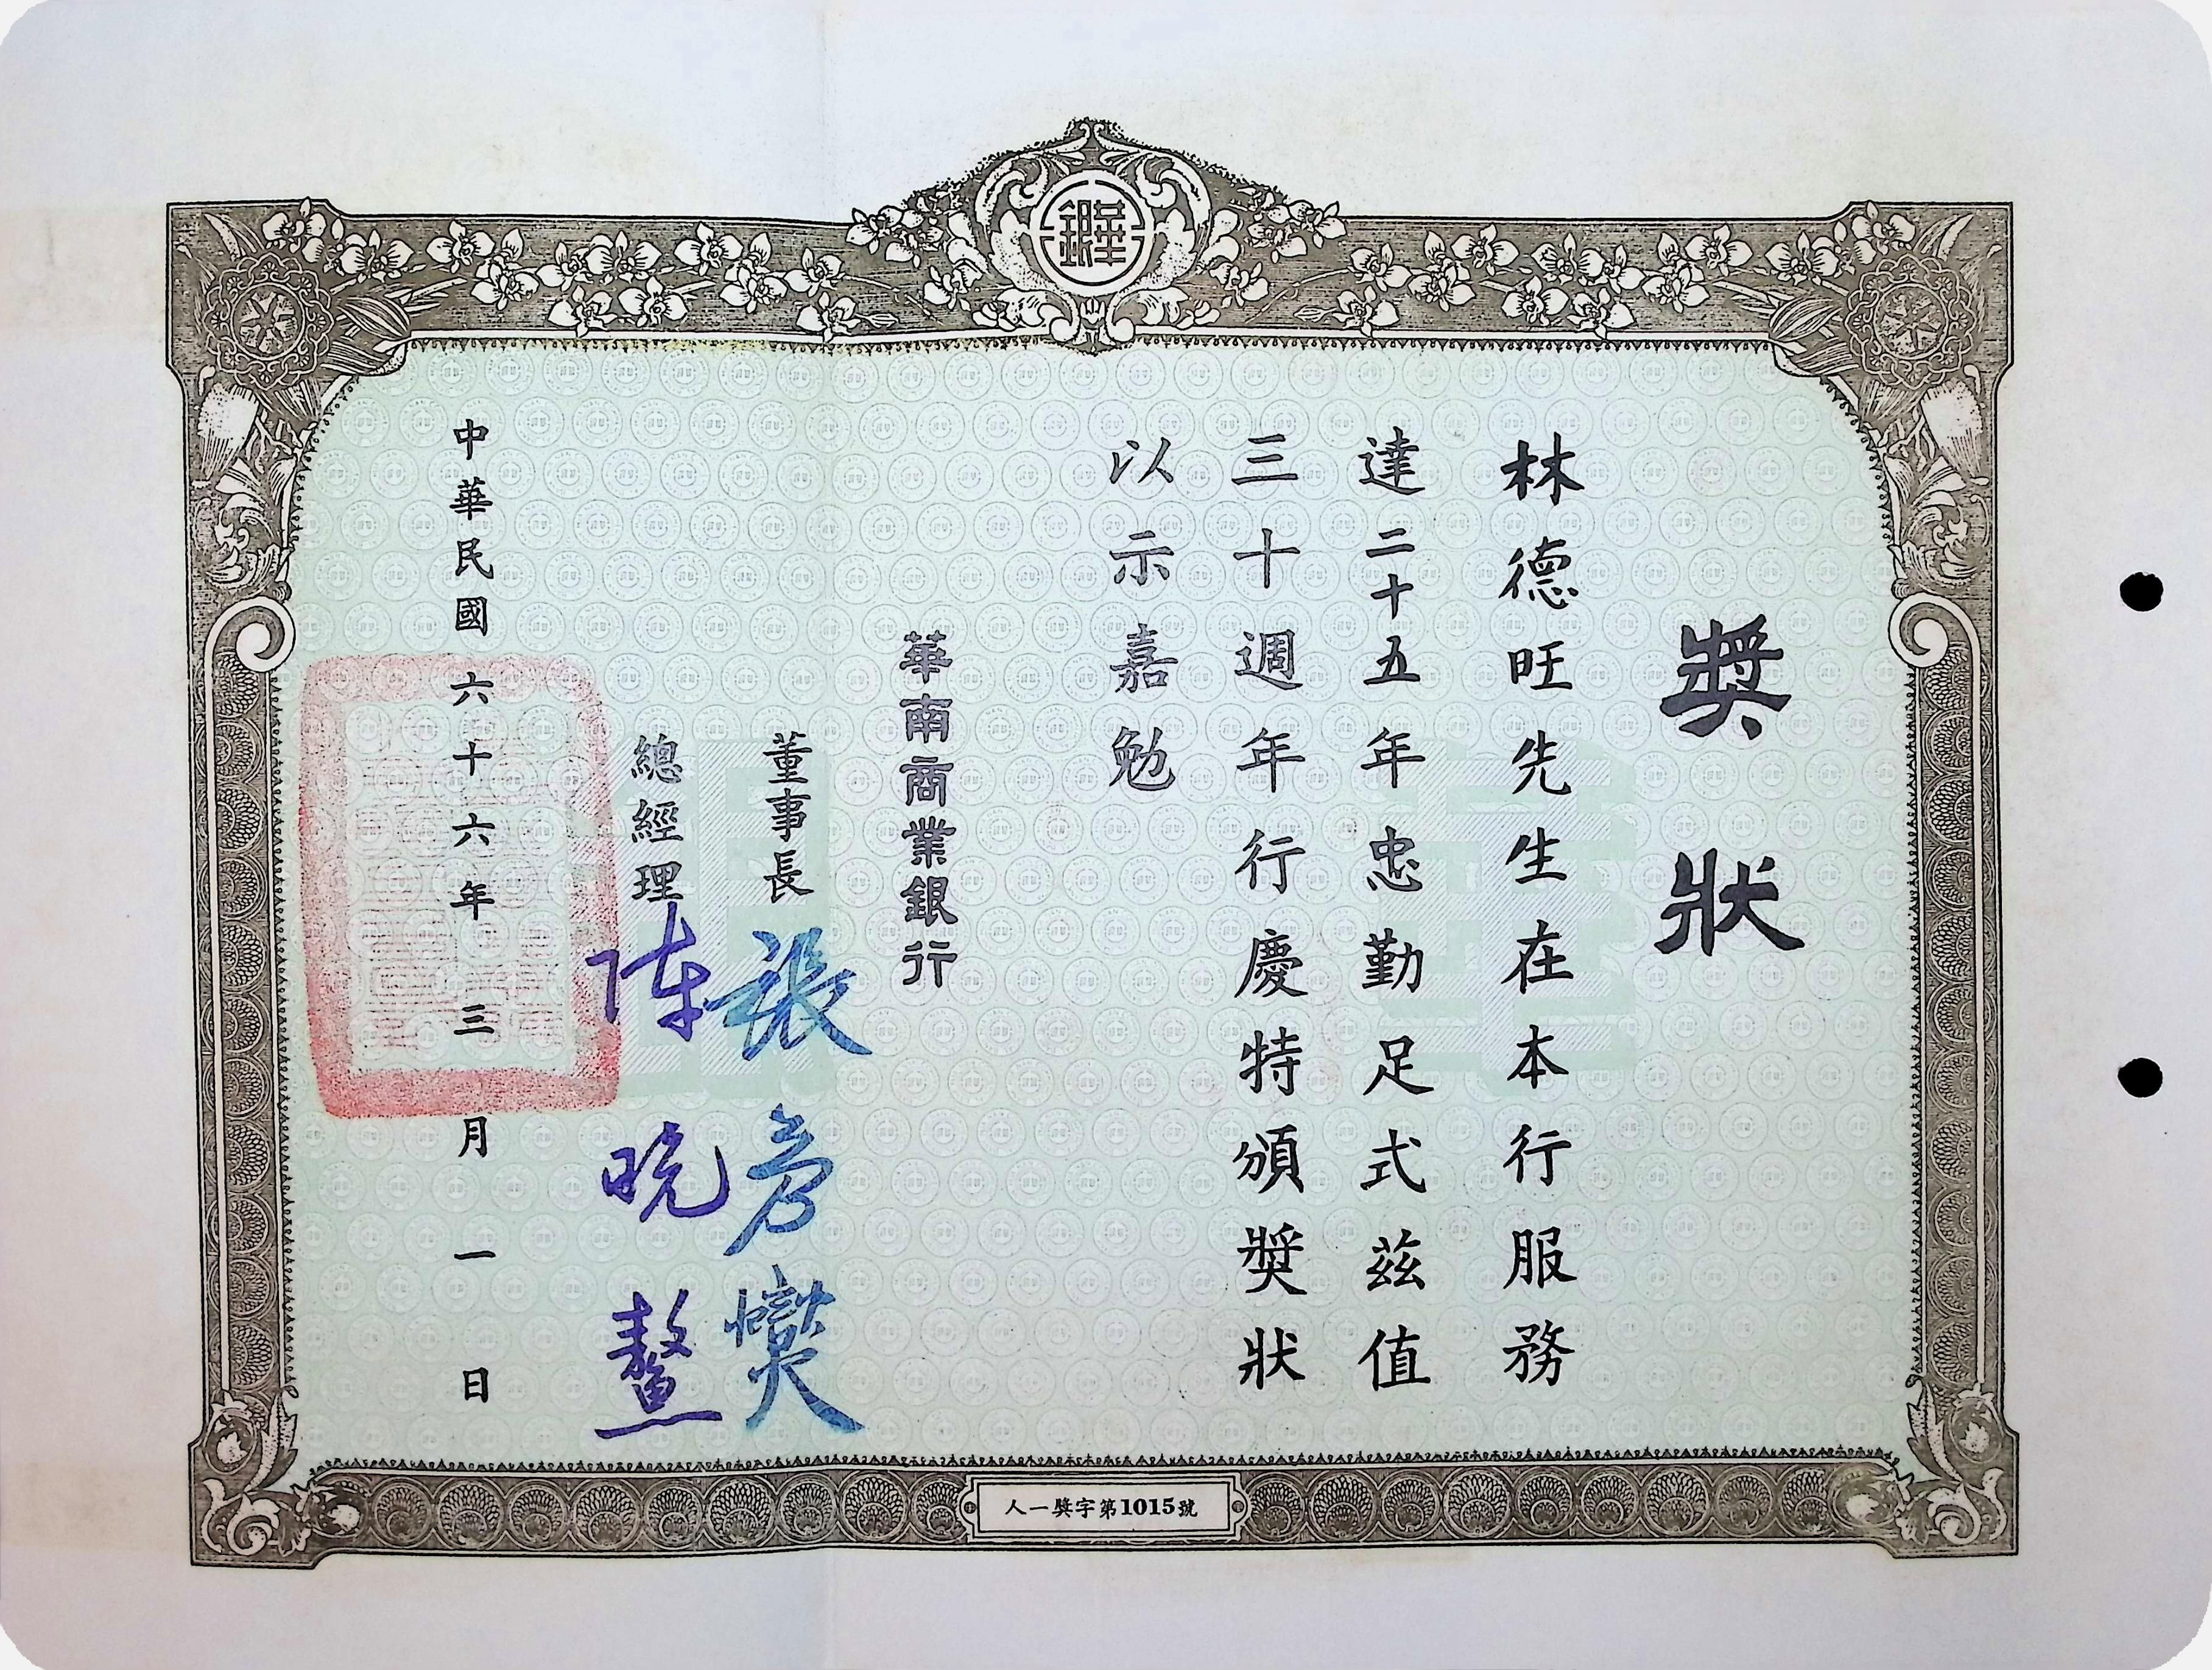 獎狀
林德旺先生在本行服務
達二十五年忠勤足式茲值
三十週年行慶特頒獎狀
以示嘉勉
華南商業銀行
董事長 張彥
總經理 陳晩鰲
中華民國六十六年三月一日
人一獎字第1015號